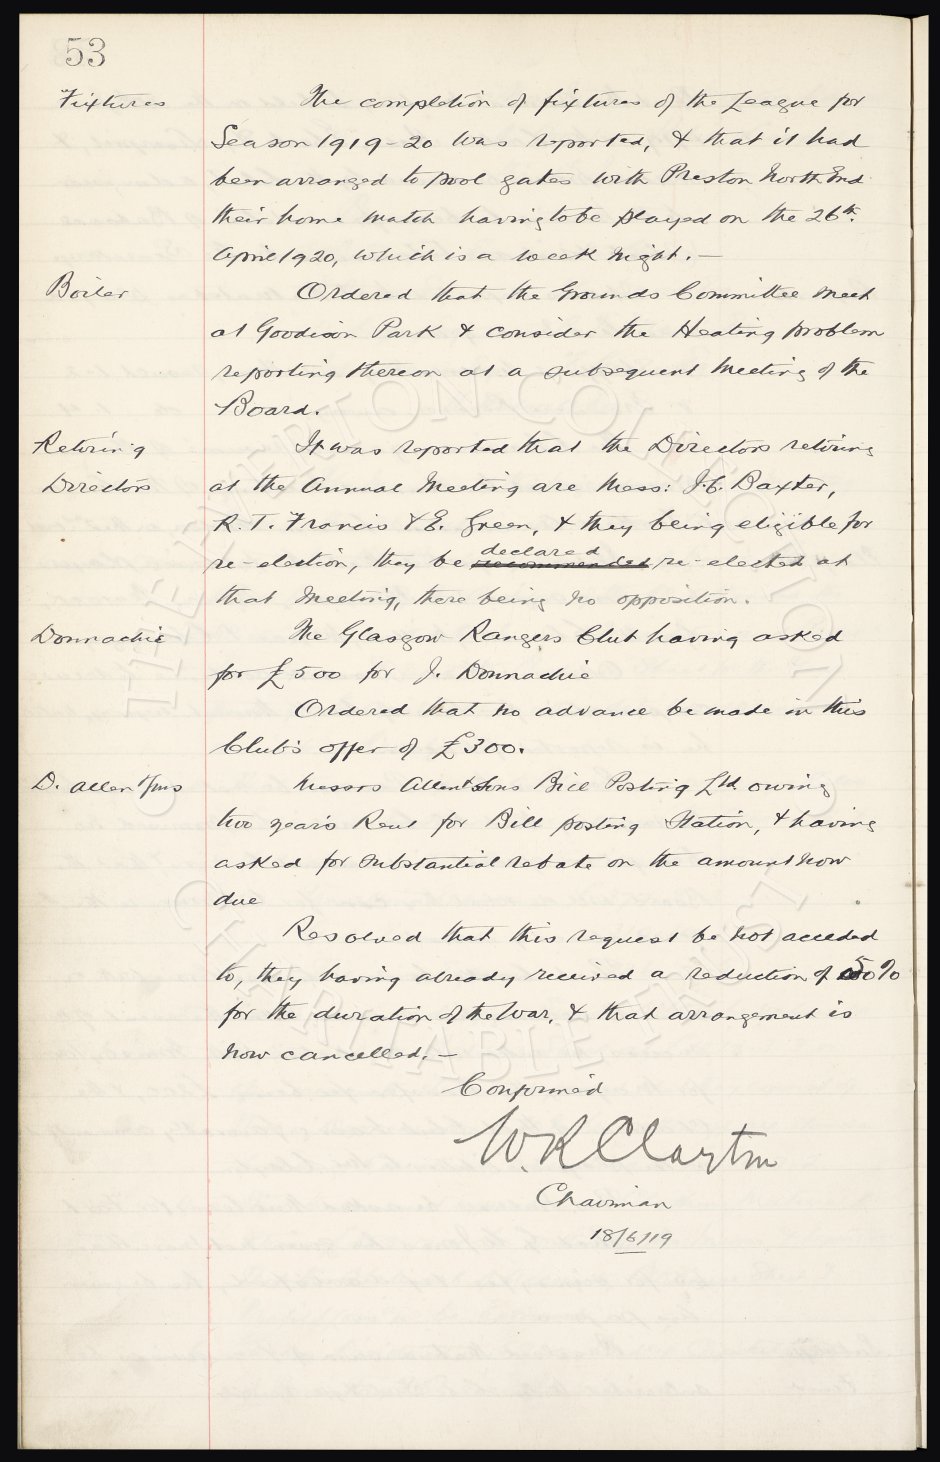 53
Fixtures The completion of fixtures of the League for
Season 1919-20 was reported, & that it had
been arranged to pool gates with Preston North End
their home match having to be played on the 26th.
April 1920, which is a week night. —
Boiler Ordered that the Grounds Committee meet
at Goodison Park & consider the Heating problem
reporting thereon at a subsequent Meeting of the
Board.
Retiring It was reported that the Directors retiring
Directors at the Annual Meeting are Mess: J.C. Baxter,
R. T. Francis & E. Green, & they being eligible for
declared
re-election, they be recommended re-elected at
that Meeting, there being no opposition.
Donnachie The Glasgow Rangers Club having asked
for £500 for J. Donnachie
Ordered that no advance be made in this
Club's offer of £300.
D. Allen & Sons Messrs Allen & Sons Bill Posting Ltd owing
two years Rent for Bill posting Station, & having
asked for substantial rebate on the amount now
due
Resolved that this request be not acceded
to, they having already received a reduction of 50%
for the duration of the War, & that arrangement is
now cancelled. —
Confirmed
W.R. Clayton
Chairman
18/6/19